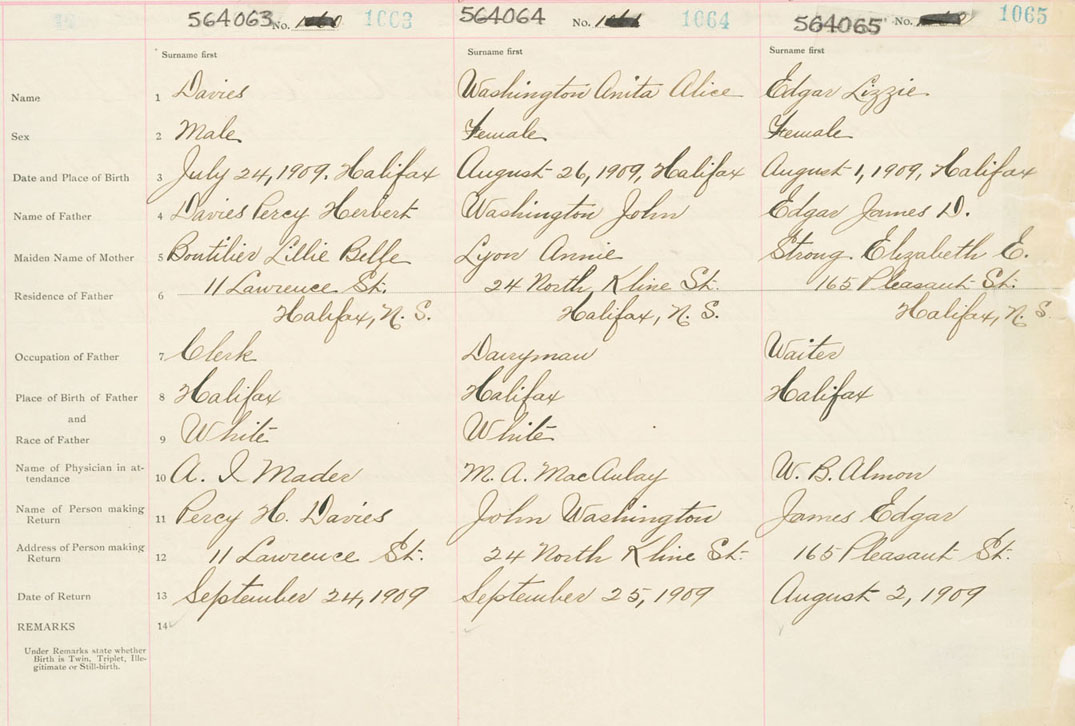 564063 No. 1063 564064 No. 1064 564065 No. 1065
Surname first Surname first Surname first
Name 1 Davies Washington Anita Alice Edgar Lizzie
Sex 2 Male Female Female
Date and Place of Birth 3 July 24, 1909. Halifax August 26, 1909, Halifax August 1, 1909, Halifax
Name of Father 4 Davies Percy Herbert Washington John Edgar James D.
Maiden Name of Mother 5 Boutilier Lillie Belle Lyon Annie Strong Elizabeth E.
11 Lawrence St. 24 North Kline St. 165 Pleasant St.
Residence of Father 6
Halifax, N. S. Halifax, N. S. Halifax, N. S.
Occupation of Father 7 Clerk Dairyman Waiter
Place of Birth of Father 8 Halifax Halifax Halifax
and
Race of Father 9 White White
Name of Physician in at-
tendance 10 A. I Mader M. A. MacAulay W. B. Almon
Name of Person making
Return 11 Percy H. Davies John Washington James Edgar
Address of Person making
Return 12 11 Lawrence St. 24 North Kline St. 165 Pleasant St.
Date of Return 13 September 24, 1909 September 25, 1909 August 2, 1909
REMARKS 14
Under Remarks state whether
Birth is Twin, Triplet, Ille-
gitimate or Still-birth.